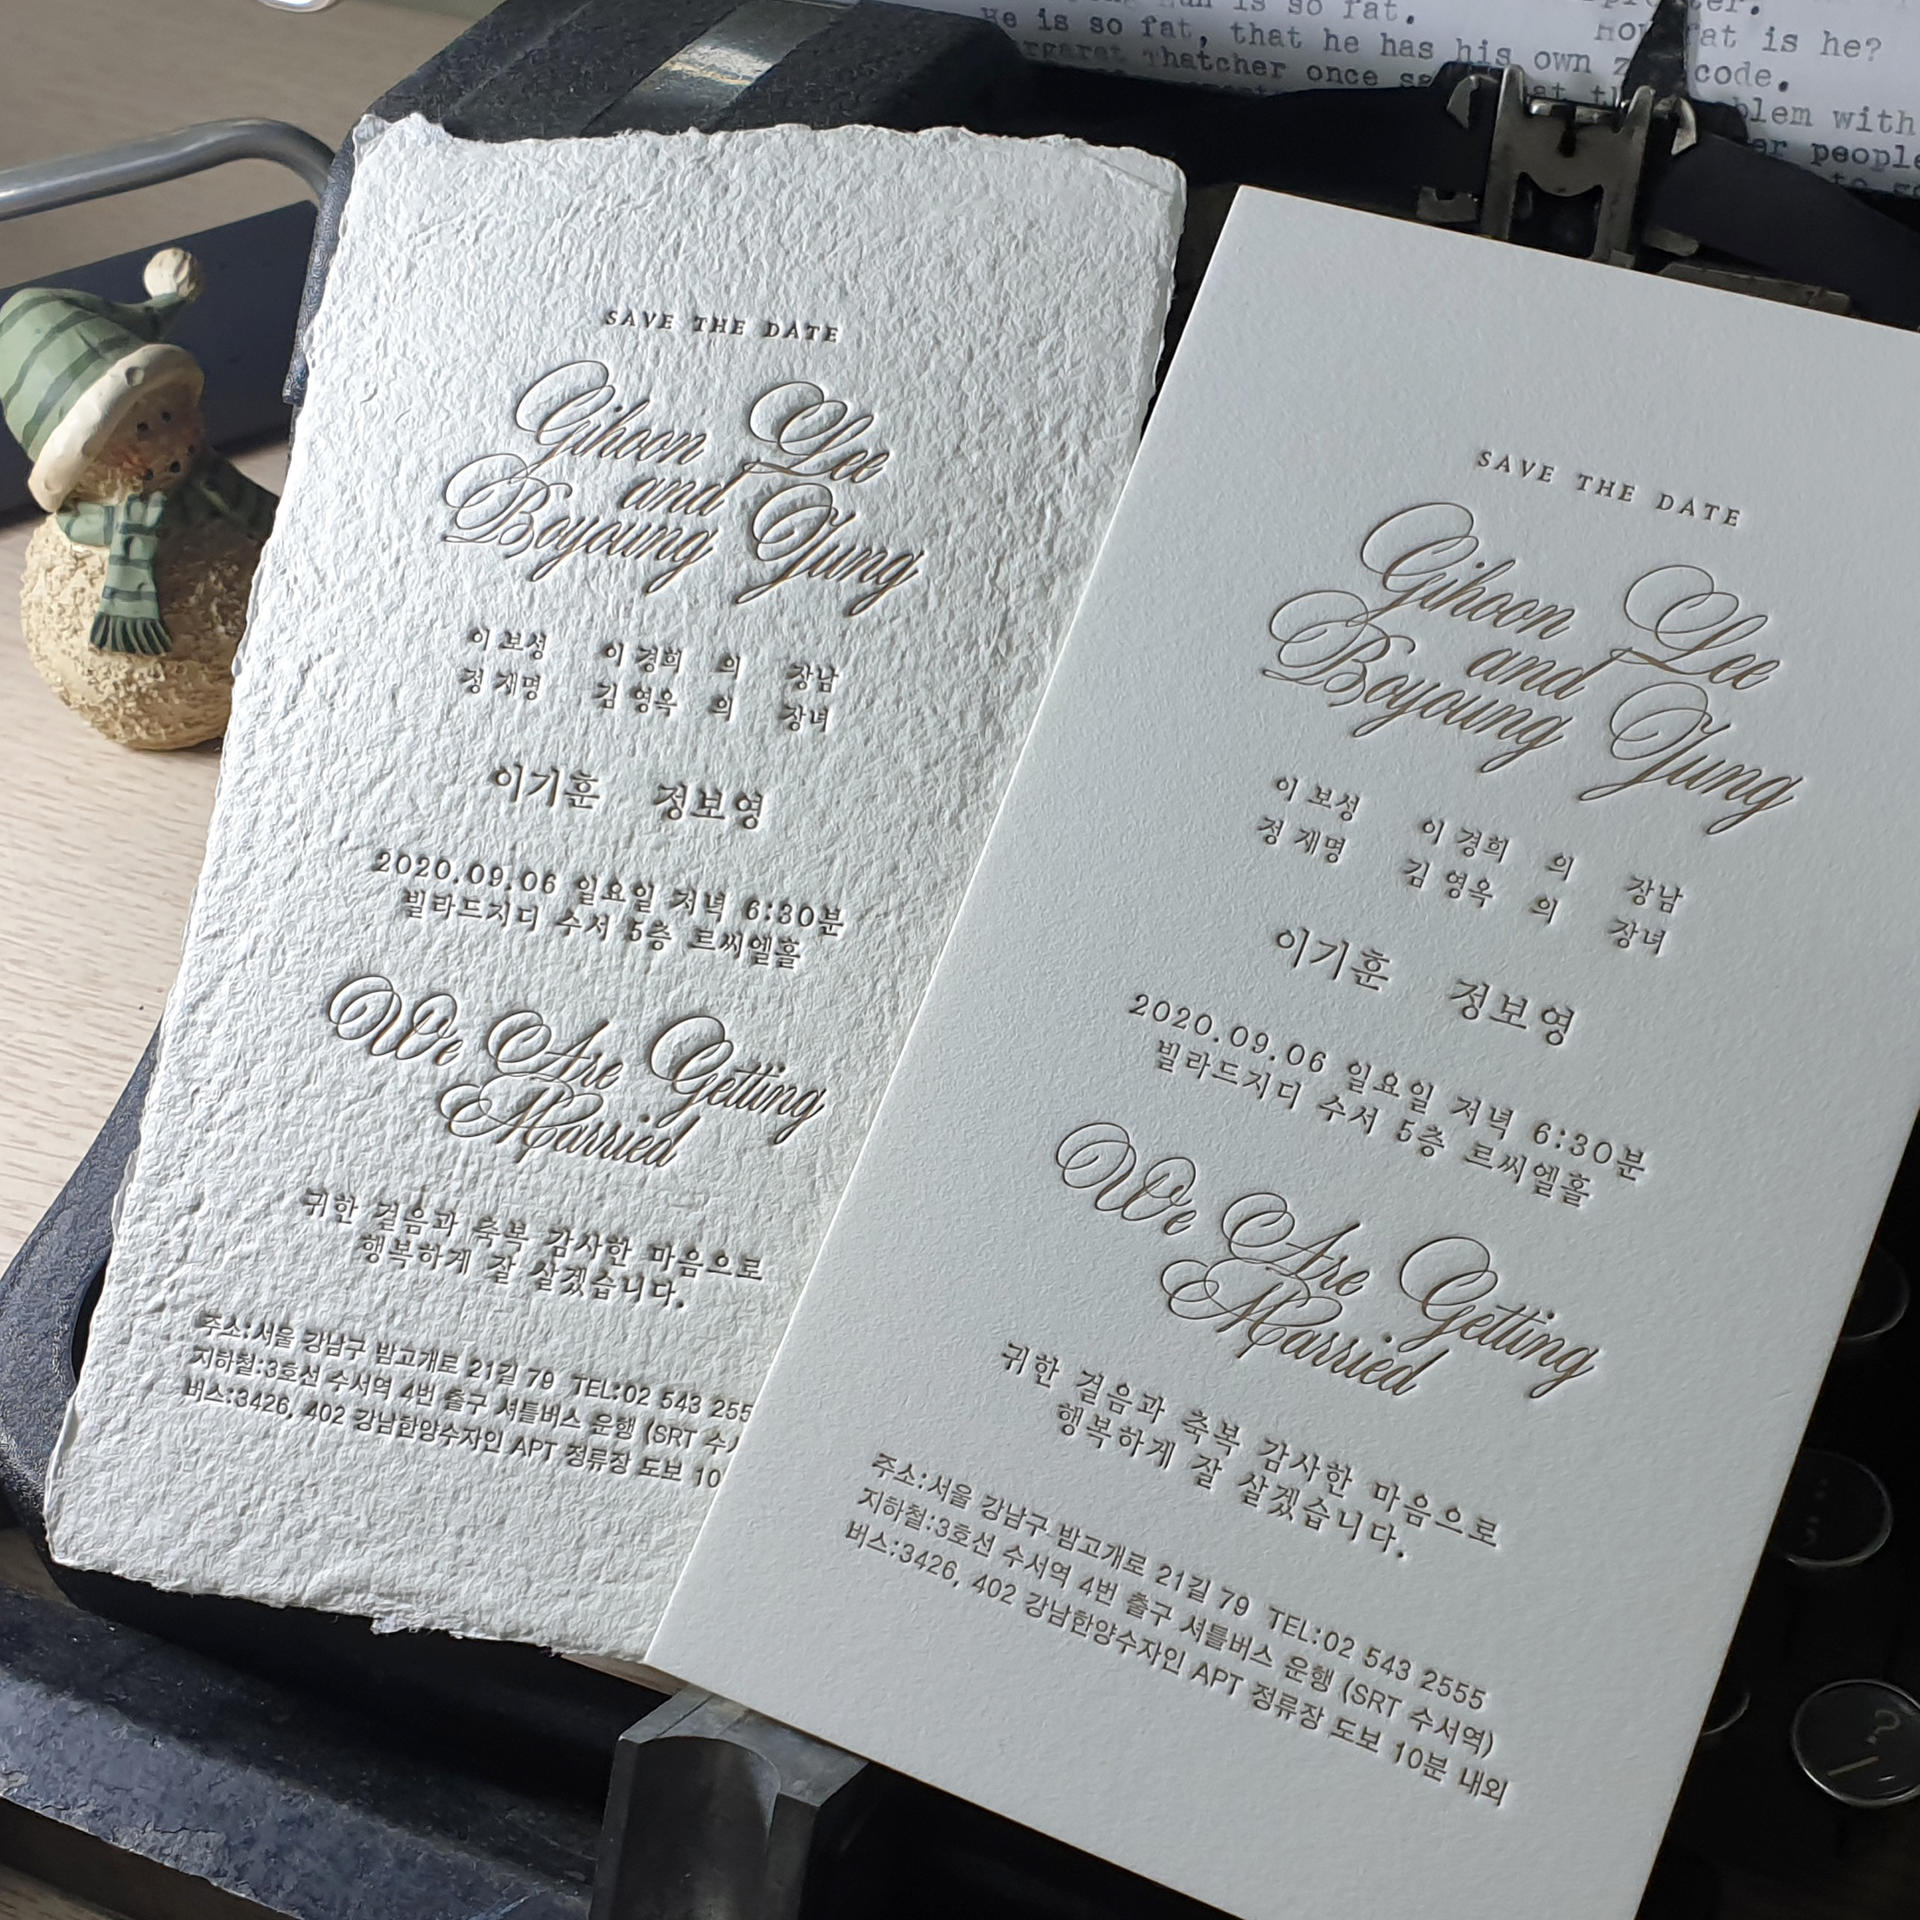 is so fat.
He is so fat, that he has his own
code.
at is he?
Thatcher once
blem with
people
SAVE THE DATE
Gihoon Lee
and
Boyoung Jung
이 보성 이 경희 의 장남
정 재명 김 영옥 의 장녀
이기훈 정보영
2020.09.06 일요일 저녁 6:30분
빌라드지디 수서 5층 르씨엘홀
We Are Getting
Married
귀한 걸음과 축복 감사한 마음으로
행복하게 잘 살겠습니다.
주소:서울 강남구 밤고개로 21길 79 TEL:02 543 255
지하철:3호선 수서역 4번 출구 셔틀버스 운행 (SRT 수
버스:3426, 402 강남한양수자인 APT 정류장 도보 10
SAVE THE DATE
Gihoon Lee
and
Boyoung Jung
이 보성 이 경희 의 장남
정 재명 김 영옥 의 장녀
이기훈 정보영
2020.09.06 일요일 저녁 6:30분
빌라드지디 수서 5층 르씨엘홀
We Are Getting
Married
귀한 걸음과 축복 감사한 마음으로
행복하게 잘 살겠습니다.
주소:서울 강남구 밤고개로 21길 79 TEL:02 543 2555
지하철:3호선 수서역 4번 출구 셔틀버스 운행 (SRT 수서역)
버스:3426, 402 강남한양수자인 APT 정류장 도보 10분 내외
?
/